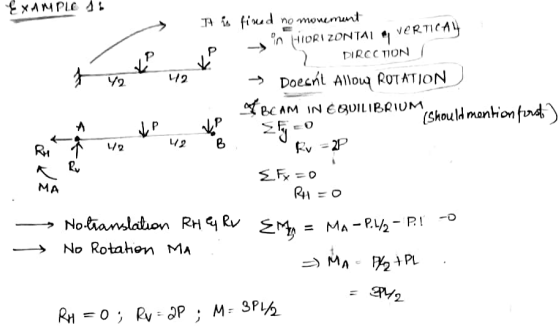 EXAMPLE 1:
It is fixed no movement
→ in HORIZONTAL & VERTICAL
DIRECTION
P P
L/2 L/2
→ Doesn't Allow ROTATION
If BEAM IN EQUILIBRIUM (Should mention first)
A P P
L/2 L/2 B
RH
Rv
MA
ΣFy = 0
Rv = 2P
ΣFx = 0
RH = 0
→ No translation RH & Rv ΣMA = MA - P.L/2 - P.l = 0
→ No Rotation MA
⇒ MA = PL/2 + PL
= 3PL/2
RH = 0 ; Rv = 2P ; M = 3PL/2